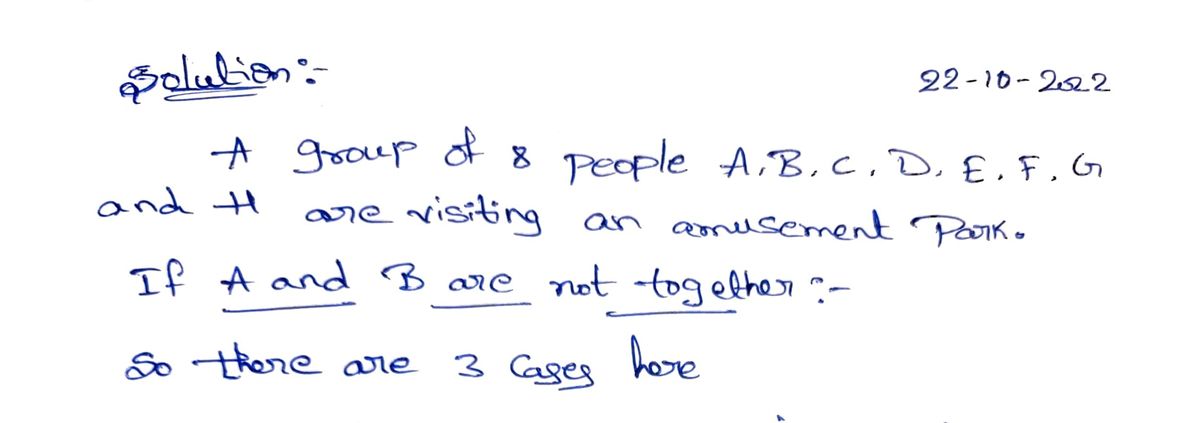 Solution:-
22-10-2022
A group of 8 people A, B, C, D, E, F, G
and H are visiting an amusement Park.
If A and B are not together :-
So there are 3 Cases here